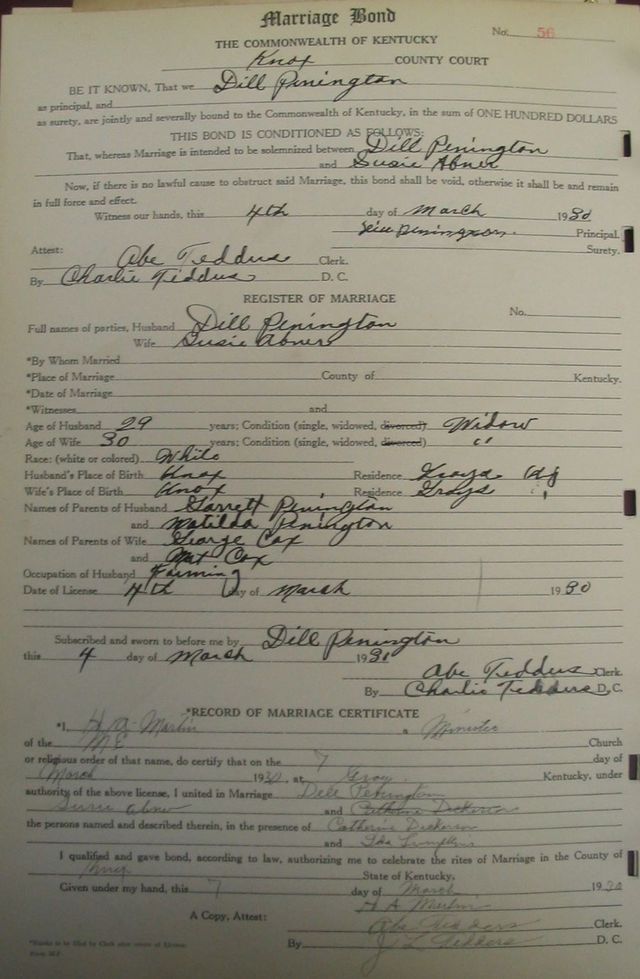 Marriage Bond
No. 56
THE COMMONWEALTH OF KENTUCKY
Knox COUNTY COURT
BE IT KNOWN, That we Dill Penington
as principal, and
as surety, are jointly and severally bound to the Commonwealth of Kentucky, in the sum of ONE HUNDRED DOLLARS
THIS BOND IS CONDITIONED AS FOLLOWS:
That, whereas Marriage is intended to be solemnized between Dill Penington
and Susie Abner
Now, if there is no lawful cause to obstruct said Marriage, this bond shall be void, otherwise it shall be and remain
in full force and effect.
Witness our hands, this 4th day of March 1930
Penington Principal.
Surety.
Attest: Abe Teddus Clerk.
By Charlie Tiddus D. C.
REGISTER OF MARRIAGE
No.
Full names of parties, Husband Dill Penington
Wife Susie Abner
*By Whom Married
*Place of Marriage County of Kentucky.
*Date of Marriage
*Witnesses and
Age of Husband 29 years; Condition (single, widowed, divorced) Widow
Age of Wife 30 years; Condition (single, widowed, divorced) "
Race: (white or colored) White
Husband's Place of Birth Knox Residence Grays Ky
Wife's Place of Birth Knox Residence Grays "
Names of Parents of Husband Garrett Penington
and Matilda Penington
Names of Parents of Wife George Cox
and Mat Cox
Occupation of Husband Farming
Date of License 4th day of March 1930
Subscribed and sworn to before me by Dill Penington
this 4 day of March 1930
Abe Teddus Clerk.
By Charlie Tedders D. C.
*RECORD OF MARRIAGE CERTIFICATE
*I, H. A. Martin a Minister
of the M E Church
or religious order of that name, do certify that on the 7 day of
March 1930, at Gray, Kentucky, under
authority of the above license, I united in Marriage Dill Penington
Susie Abner and Catherine Dickerson
the persons named and described therein, in the presence of Catherine Dickerson
and Ida
I qualified and gave bond, according to law, authorizing me to celebrate the rites of Marriage in the County of
Knox State of Kentucky.
Given under my hand, this 7 day of March 1930
H A Martin
A Copy, Attest: Abe Tedders Clerk.
By J L Tedders D. C.